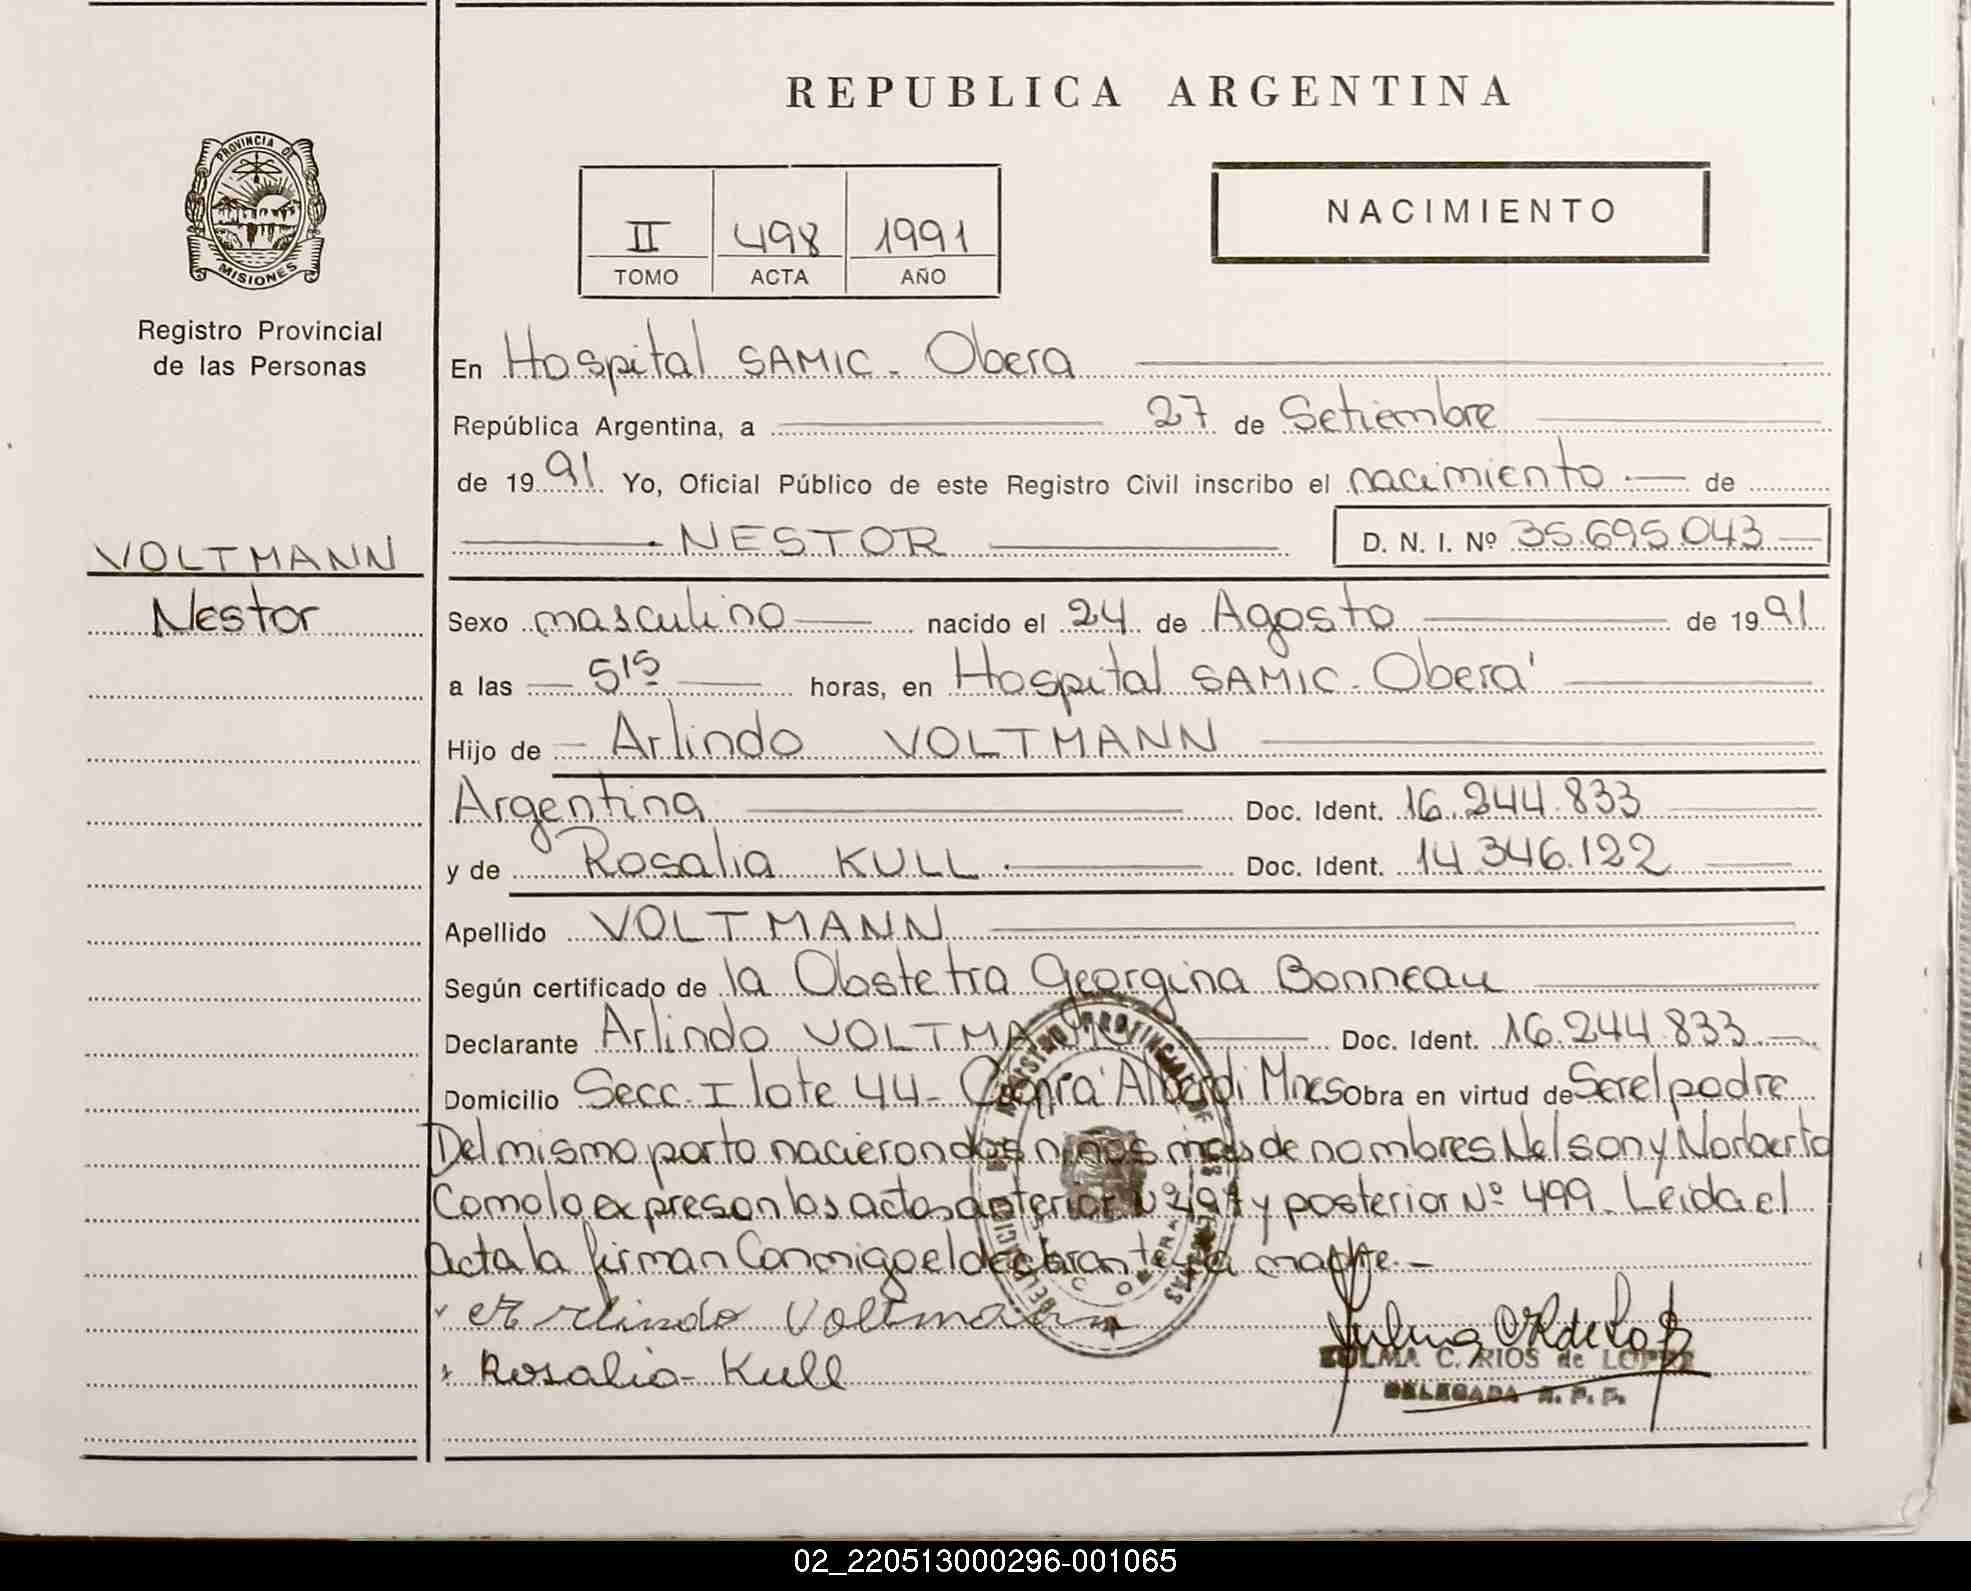 REPUBLICA ARGENTINA
PROVINCIA DE
MISIONES
Registro Provincial
de las Personas
II 498 1991
TOMO ACTA AÑO
NACIMIENTO
En Hospital SAMIC - Obera
República Argentina, a 27 de Setiembre
de 1991 Yo, Oficial Público de este Registro Civil inscribo el nacimiento de
NESTOR D. N. I. Nº 35.695.043
VOLTMANN
Nestor
Sexo masculino nacido el 24 de Agosto de 1991
a las 5 15 horas, en Hospital SAMIC - Oberá
Hijo de Arlindo VOLTMANN
Argentina Doc. Ident. 16.244.833
y de Rosalia KULL Doc. Ident. 14.346.122
Apellido VOLTMANN
Según certificado de la Obstetra Georgina Bonneau
Declarante Arlindo VOLTMANN Doc. Ident. 16.244.833
Domicilio Secc. I lote 44 - Alberdi Mnes Obra en virtud de Ser el padre
Del mismo parto nacieron dos niños mas de nombres Nelson y Norberto
Como lo expresan las actas anterior Nº 497 y posterior Nº 499. Leida el
acta la firman Conmigo el declarante y la madre.-
Arlindo Voltmann
Rosalia - Kull
ZULMA C. RIOS de LOPEZ
DELEGADA R. P. P.
REGISTRO PROVINCIAL DE LAS PERSONAS
02_220513000296-001065